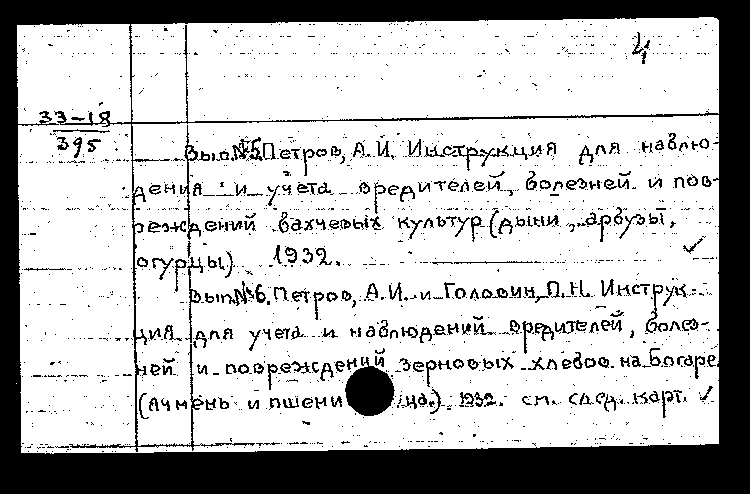 4
33-18
395
Вып.№5. Петров, А.И. Инструкция для наблю-
дения и учета вредителей, болезней и пов-
реждений бахчевых культур (дыни, арбузы,
огурцы) 1932.
Вып.№6. Петров, А.И. и Головин, П.Н. Инструк-
ция для учета и наблюдений вредителей, болез-
ней и повреждений зерновых хлебов на богаре
(ячмень и пшеница.) 1932. см. след. карт.